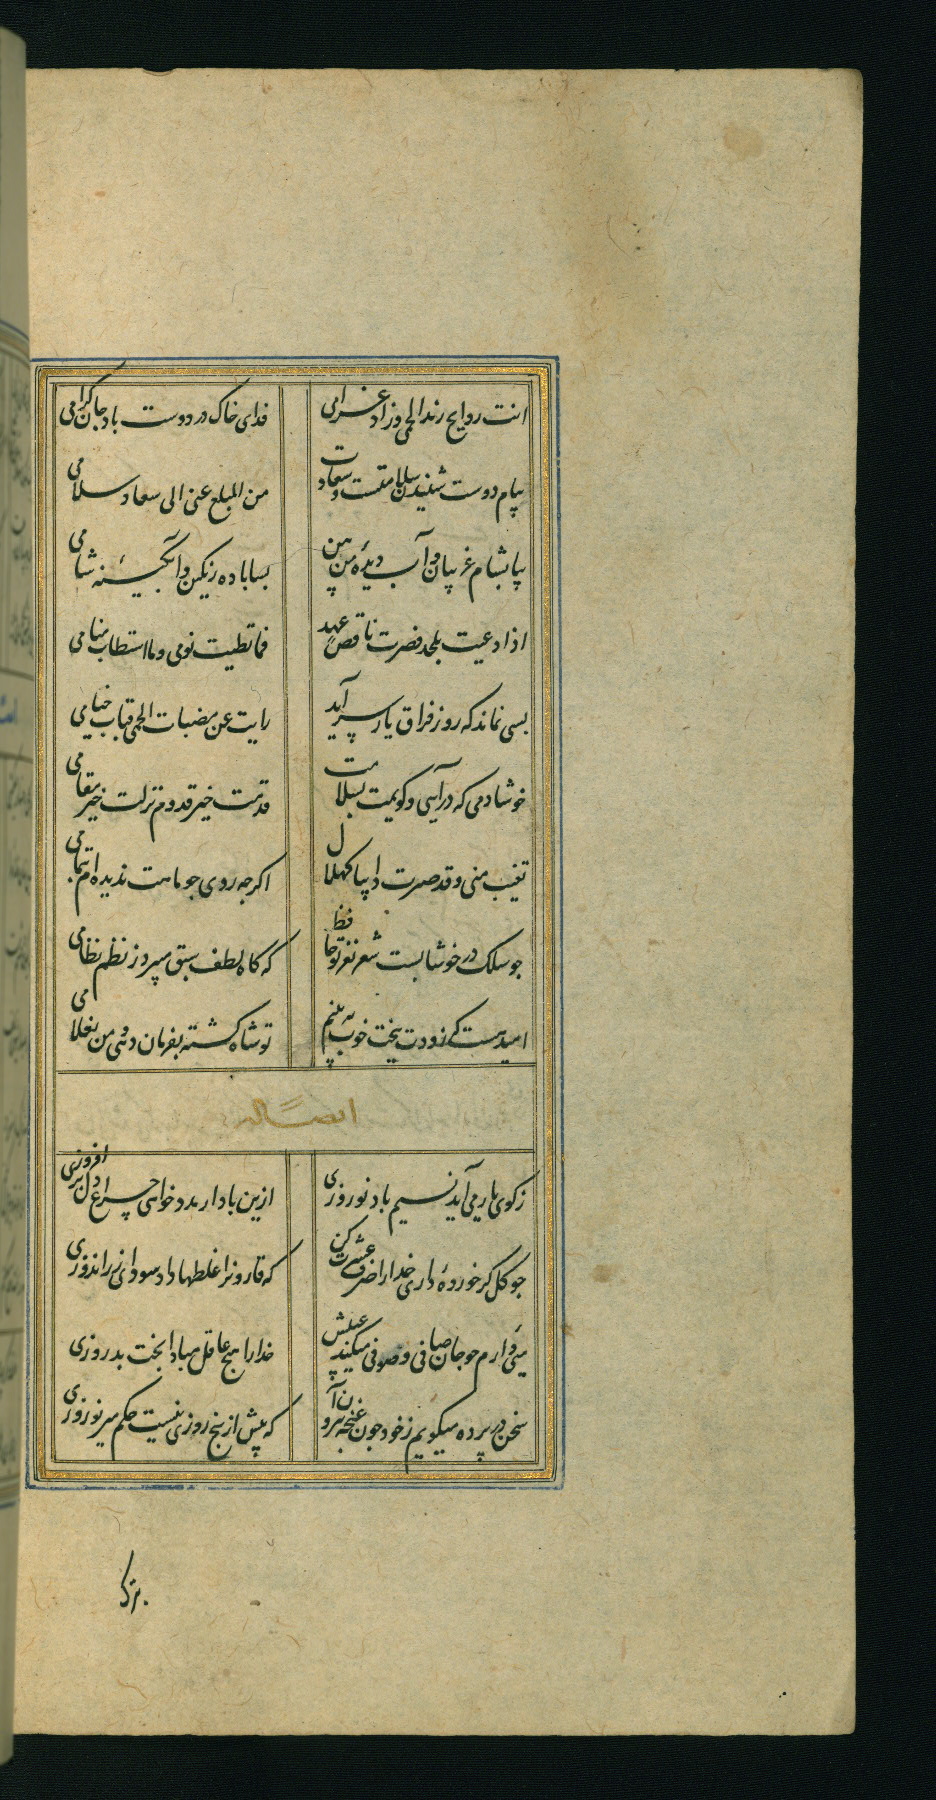 اتت روایح رند الحمی و زاد غرامی فدای خاک در دوست باد جان گرامی
پیام دوست شنیدن سلامتست و سعادت من المبلغ عنی الی سعاد سلامی
بیا بشام غریبان و آب دیدهٔ من بین بسا باده رنکین و آبکینهٔ شامی
اذا دعیت بلحد فصرت ناقض عهد فما تطیب نومی و ما استطاب منامی
بسی نماند که روز فراق یار سر آید رایت عن هضبات الحمی قباب خیامی
خوشا دمی که درآیی و کویمت بسلامت قدمت خیر قدوم نزلت خیر مقامی
تغیب منی و قد صرت دایبا کهلال اکرچه روی چو ماهت ندیده‌ام بتمامی
چو سلک در خوشابست شعر نغز تو حافظ که کاه لطف سبق میبرد ز نظم نظامی
امید هست که زودت ببخت خوب ببینم تو شاد کشته بفرمان دهی و من بغلامی
ایضا له
ز کوی یار می‌آید نسیم باد نوروزی ازین باد ار مدد خواهی چراغ دل برافروزی
چو کل کر خوردهٔ داری خدا را صرف عشرت کن که قارونرا غلطها داد سودای زراندوزی
میی دارم چو جان صافی و صوفی میکند عیبش خدارا هیچ عاقل را مبادا بخت بد روزی
سخن در پرده میکویم ز خود چون غنچه بیرون آ که بیش از پنج روزی نیست حکم میر نوروزی